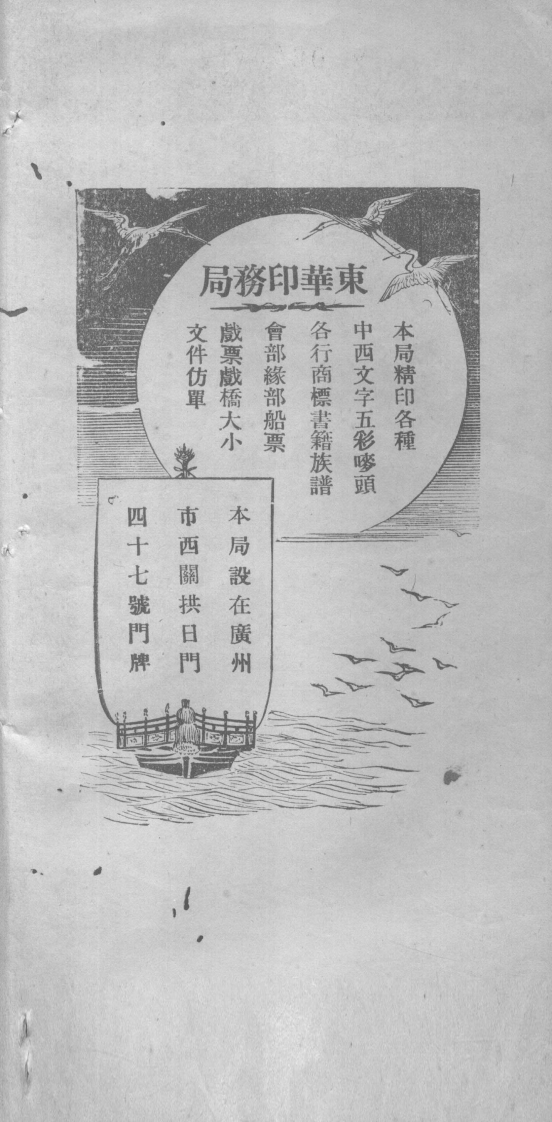 東華印務局
本局精印各種
中西文字五彩嘜頭
各行商標書籍族譜
會部緣部船票
戲票戲橋大小
文件仿單
本局設在廣州
市西關拱日門
四十七號門牌